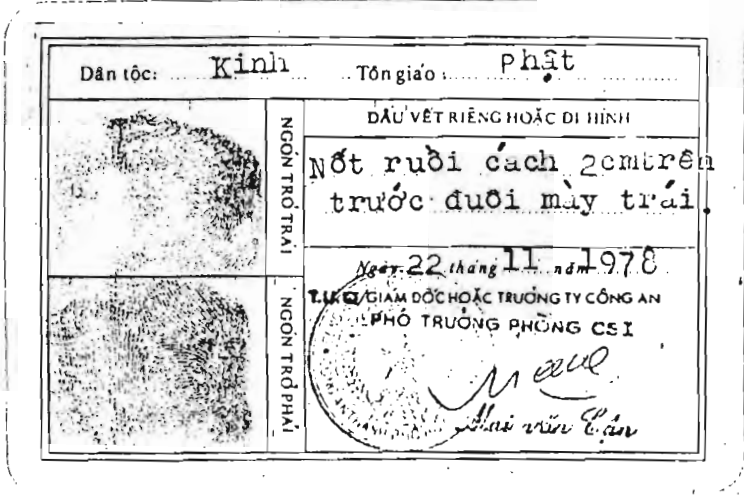 Dân tộc: Kinh Tôn giáo: Phật
NGÓN TRỎ TRÁI
DẤU VẾT RIÊNG HOẶC DỊ HÌNH
Nốt ruồi cách 2cm trên
trước đuôi mày trái.
Ngày 22 tháng 11 năm 1978
T.U.Q/GIÁM ĐỐC HOẶC TRƯỞNG TY CÔNG AN
PHÓ TRƯỞNG PHÒNG CSI
NGÓN TRỎ PHẢI
Mai văn